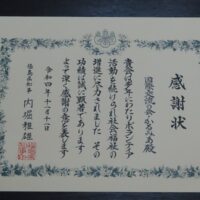 感謝状
国際交流の会かるみあ殿
貴会は多年にわたりボランティア
活動を続けられ社会福祉の
増進に尽力されました その
功績は誠に顕著であります
よって深く感謝の意を表します
令和四年十一月十八日
福島県知事 内堀雅雄